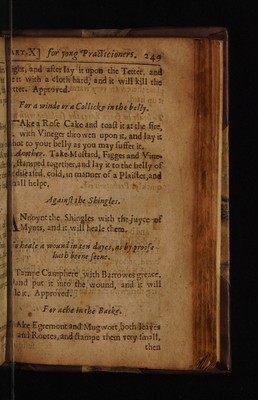 ART.X] for yong Practicioners. 249
ight, and after lay it upon the Tetter, and
it with a cloth hard, and it will kill the
tter. Approved.
For a winde or a Collicke in the belly.
Ake a Rose Cake and toast it at the fire,
with Vineger throwen upon it, and lay it
hot to your belly as you may suffer it.
Another. Take Mustard, Figges and Vine-
stamped together, and lay it to the belly of
diseased, cold, in manner of a Plaister, and
hall helpe,
Against the Shingles.
Nnoynt the Shingles with the juyce of
Mynts, and it will heale them.
To heale a wound in ten dayes, as by proofe
hath beene seene.
Tampe Camphere with Barrowes greace,
and put it into the wound, and it will
le it. Approved.
For ache in the Backe.
Ake Egremont and Mugwort, both leaves
and Rootes, and stampe them very small,
then